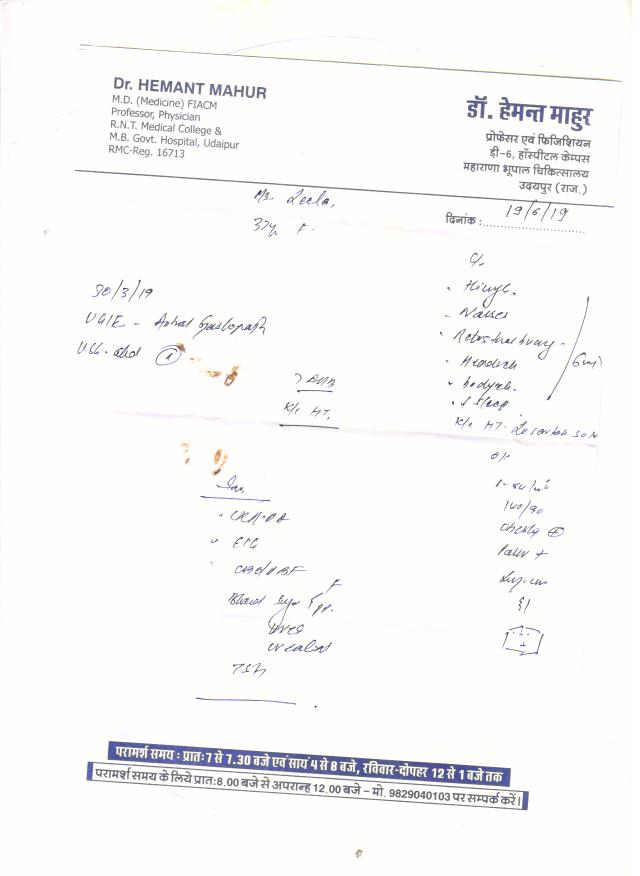 Dr. HEMANT MAHUR
M.D. (Medicine) FIACM
Professor, Physician
R.N.T. Medical College &
M.B. Govt. Hospital, Udaipur
RMC-Reg. 16713
डॉ. हेमन्त माहुर
प्रोफेसर एवं फिजिशियन
डी-6, हॉस्पीटल केम्पस
महाराणा भूपाल चिकित्सालय
उदयपुर (राज.)
दिनांक : 19/6/19
Ms. Leela,
37y F.
C/o
Nausea
Headach
bodyach
↓ sleep
K/c HT- Losartan
30/3/19
UGIE - Antral Gastropath
USG - abd
K/c HT,
O/E
140/90
Obesity +
Inv.
CXR-PA
ECG
CBC/PBF
Blood Sugar F PP.
Urea
Creatin
TSH
परामर्श समय : प्रातः 7 से 7.30 बजे एवं सायं 4 से 8 बजे, रविवार-दोपहर 12 से 1 बजे तक
परामर्श समय के लिये प्रात:8.00 बजे से अपरान्ह 12.00 बजे – मो. 9829040103 पर सम्पर्क करें।